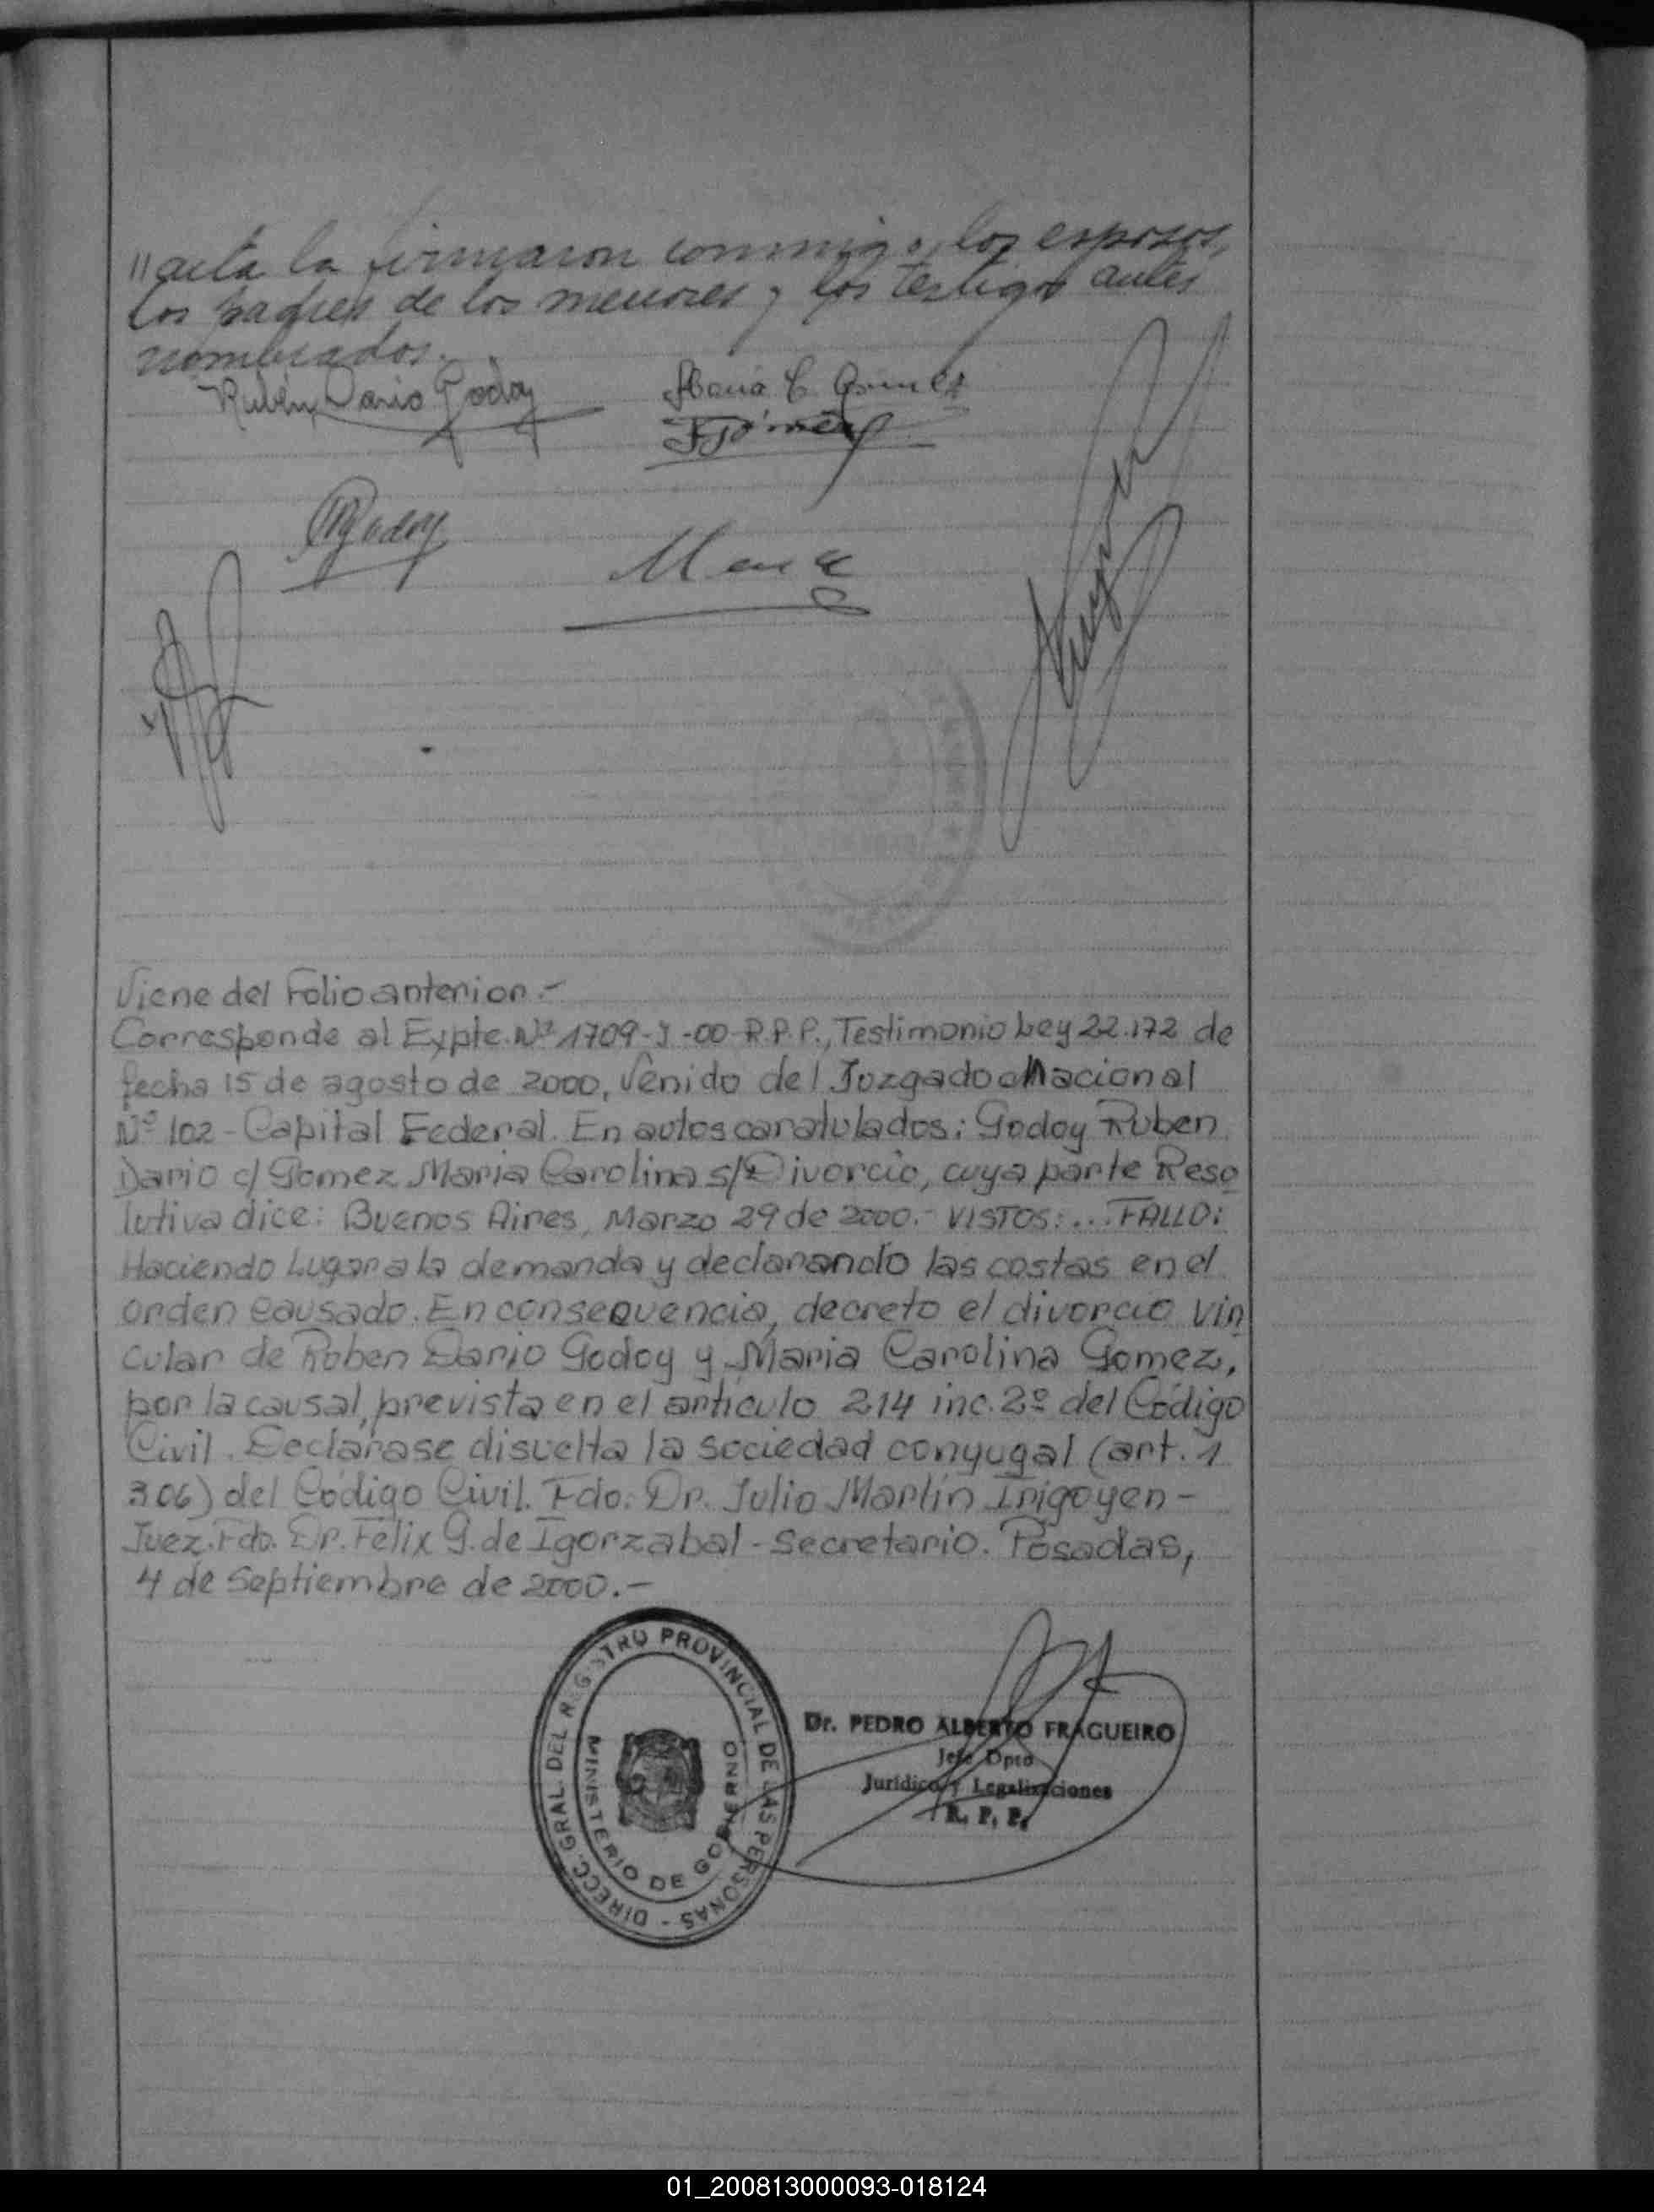 //acta la firmaron conmigo, los esposos,
los padres de los menores y los testigos antes
nombrados.
Rubén Dario Godoy
Maria C Gomez
FGómez
RGodoy
Viene del Folio anterior.-
Corresponde al Expte. Nº 1709-J-00-R.P.P., Testimonio Ley 22.172 de
fecha 15 de agosto de 2000, Venido del Juzgado Nacional
Nº 102 - Capital Federal. En autos caratulados: Godoy Ruben
Dario c/ Gomez Maria Carolina s/Divorcio, cuya parte Reso
lutiva dice: Buenos Aires, Marzo 29 de 2000.- VISTOS:... FALLO:
Haciendo Lugar a la demanda y declarando las costas en el
orden causado. En consequencia, decreto el divorcio vin
cular de Ruben Dario Godoy y Maria Carolina Gomez,
por la causal, prevista en el artículo 214 inc. 2º del Código
Civil. Declarase disuelta la sociedad conyugal (art. 1
306) del Código Civil. Fdo: Dr. Julio Martín Irigoyen -
Juez. Fdo. Dr. Félix G. de Igorzabal - Secretario. Posadas,
4 de Septiembre de 2000.-
DIRECC. GRAL. DEL REGISTRO PROVINCIAL DE LAS PERSONAS -
MINISTERIO DE GOBIERNO
Dr. PEDRO ALBERTO FRAGUEIRO
Jefe Dpto
Jurídico y Legalizaciones
R. P. P.
01_200813000093-018124